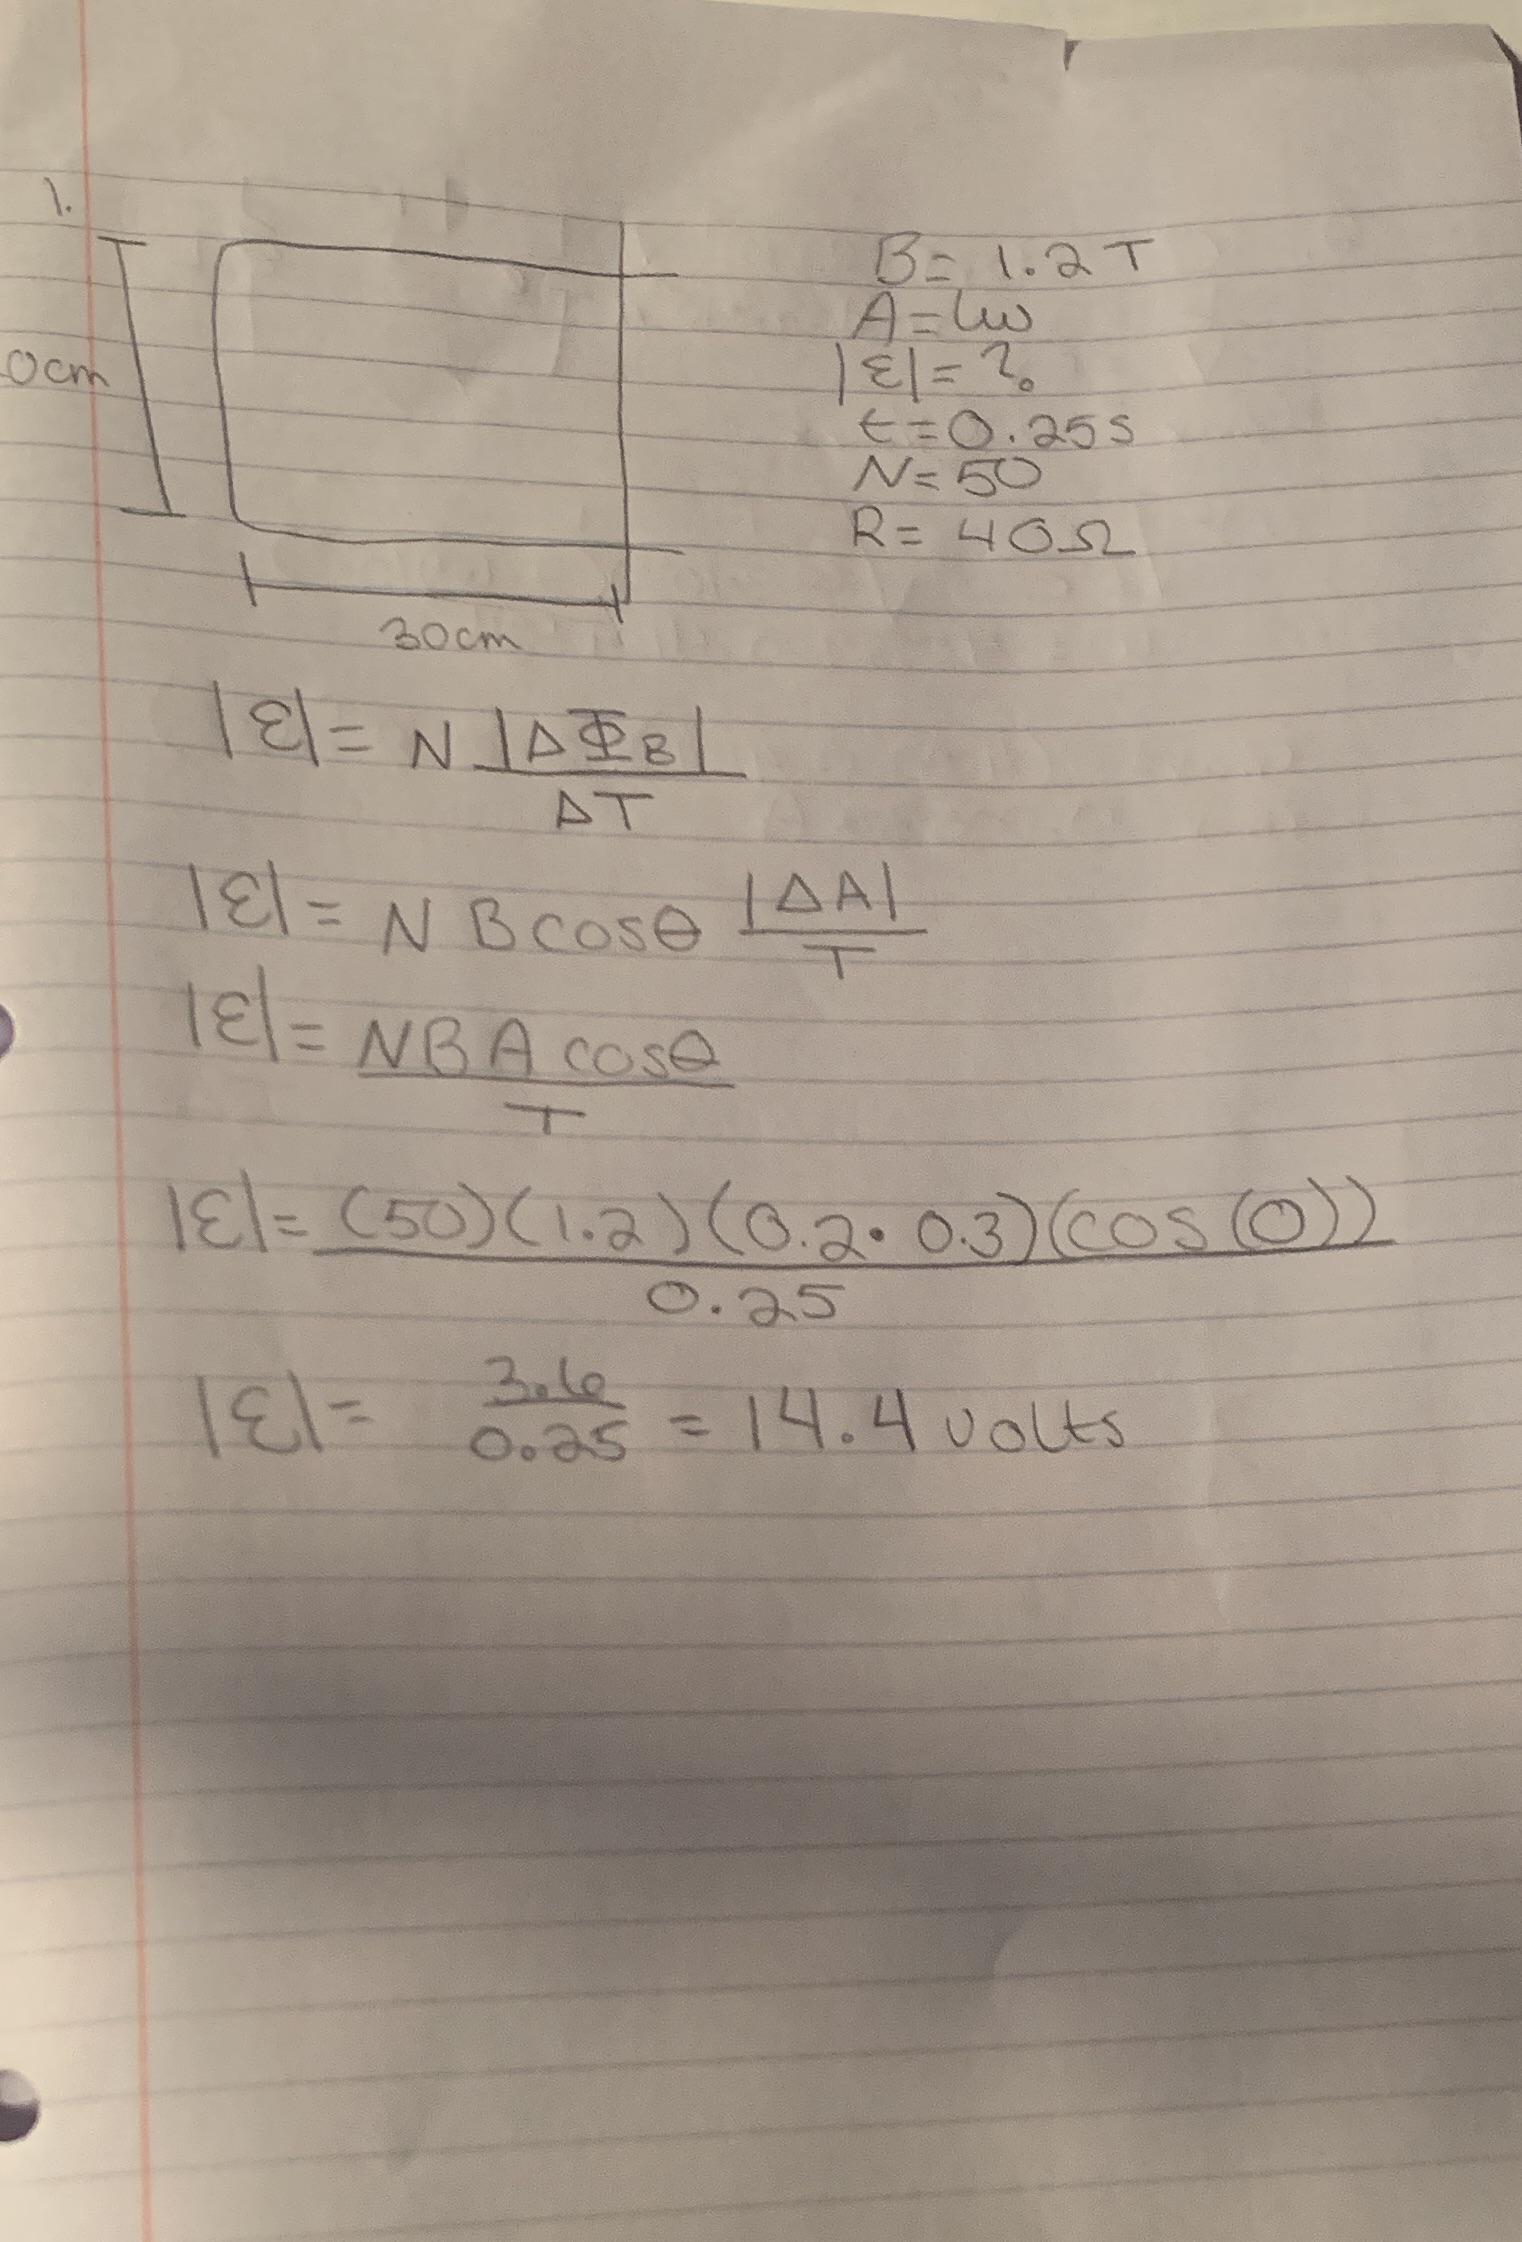 1.
B= 1.2 T
A=lw
|ε|= ?
0cm
t=0.25s
N=50
R= 40Ω
30cm
|ε|= N |ΔΦB|
ΔT
|ε|= N B cosθ |ΔA|
T
|ε|= NBA cosθ
T
|ε|= (50)(1.2)(0.2•0.3)(cos(0))
0.25
|ε|= 3.6
0.25 = 14.4 volts